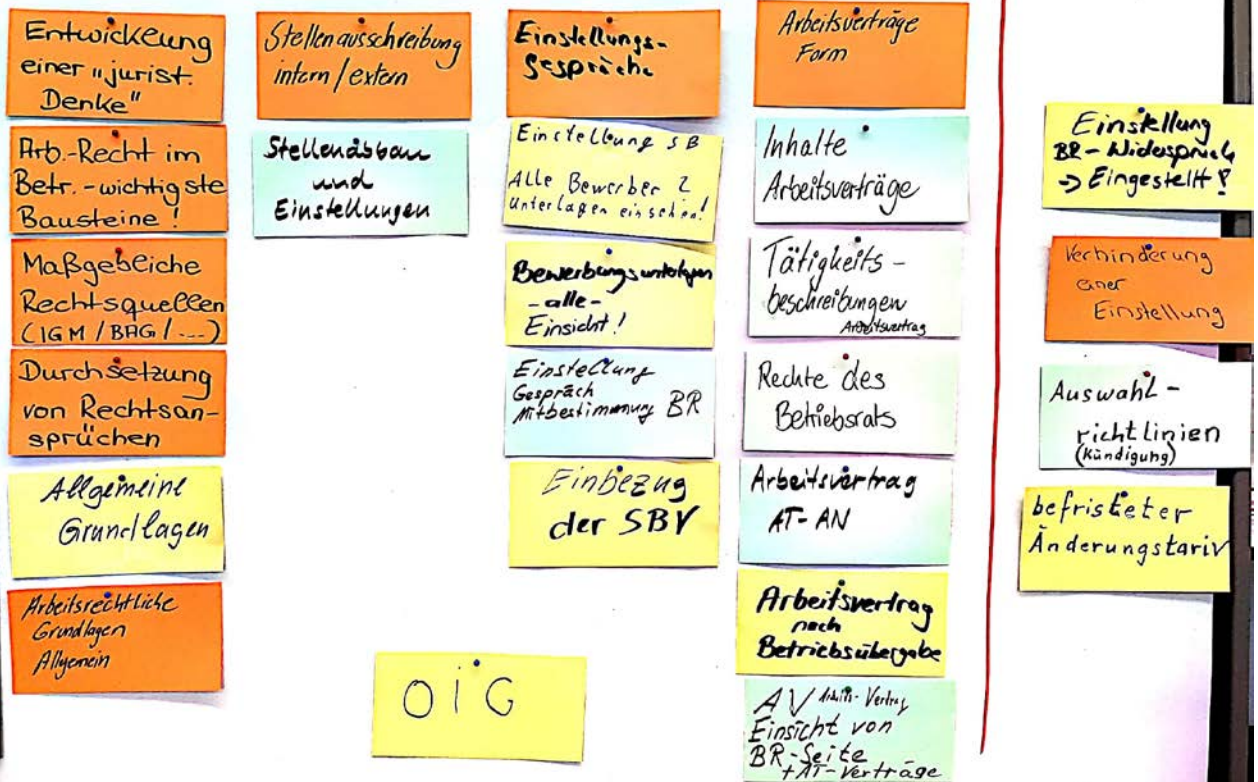 Entwickelung
einer "jurist.
Denke"
Arb.-Recht im
Betr.-wichtigste
Bausteine!
Maßgebliche
Rechtsquellen
(IGM/BAG/...)
Durchsetzung
von Rechtsan-
sprüchen
Allgemeine
Grundlagen
Arbeitsrechtliche
Grundlagen
Allgemein
Stellenausschreibung
intern/extern
Stellenabbau
und
Einstellungen
Einstellungs-
gespräche
Einstellung SB
Alle Bewerber?
Unterlagen einsehen!
Bewerbungsunterlagen
-alle-
Einsicht!
Einstellung
Gespräch
Mitbestimmung BR
Einbezug
der SBV
OiG
Arbeitsverträge
Form
Inhalte
Arbeitsverträge
Tätigkeits-
beschreibungen
Arbeitsvertrag
Rechte des
Betriebsrats
Arbeitsvertrag
AT-AN
Arbeitsvertrag
nach
Betriebsübergabe
AV Arbeits-Vertrag
Einsicht von
BR-Seite
+AT-Verträge
Einstellung
BR-Widerspruch
-> Eingestellt?
Verhinderung
einer
Einstellung
Auswahl-
richtlinien
(Kündigung)
befristeter
Änderungstariv